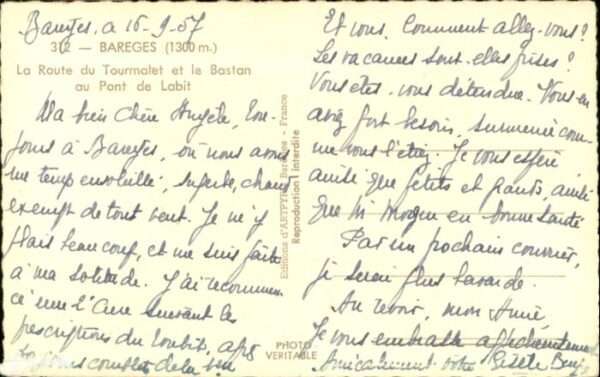 Barèges, a 16-9-57
312 — BAREGES (1300 m.)
La Route du Tourmalet et le Bastan
au Pont de Labit
Ma bien Chère Angèle, Tou-
jours à Barèges, où nous avons
un temps ensoleillé, superbe, chaud
exempt de tout vent. Je m'y
plais beaucoup, et me suis faite
à ma solitude. J'ai recommen-
cé une 2e Cure suivant les
prescriptions du Toubib, après
repos complet de la
Editions d'ART Barèges - France
Reproduction interdite
PHOTO
VERITABLE
Et vous, Comment allez-vous?
Les vacances sont-elles prises?
Vous êtes-vous détendue. Vous en
avez fort besoin, surmenée com-
me vous l'étiez. Je vous espère
ainsi que petits et grands, ainsi
que en bonne santé
Par un prochain courrier,
je serai plus bavarde.
Au revoir, mon Amie
Je vous embrasse affectueusement
Amicalement votre Gisèle